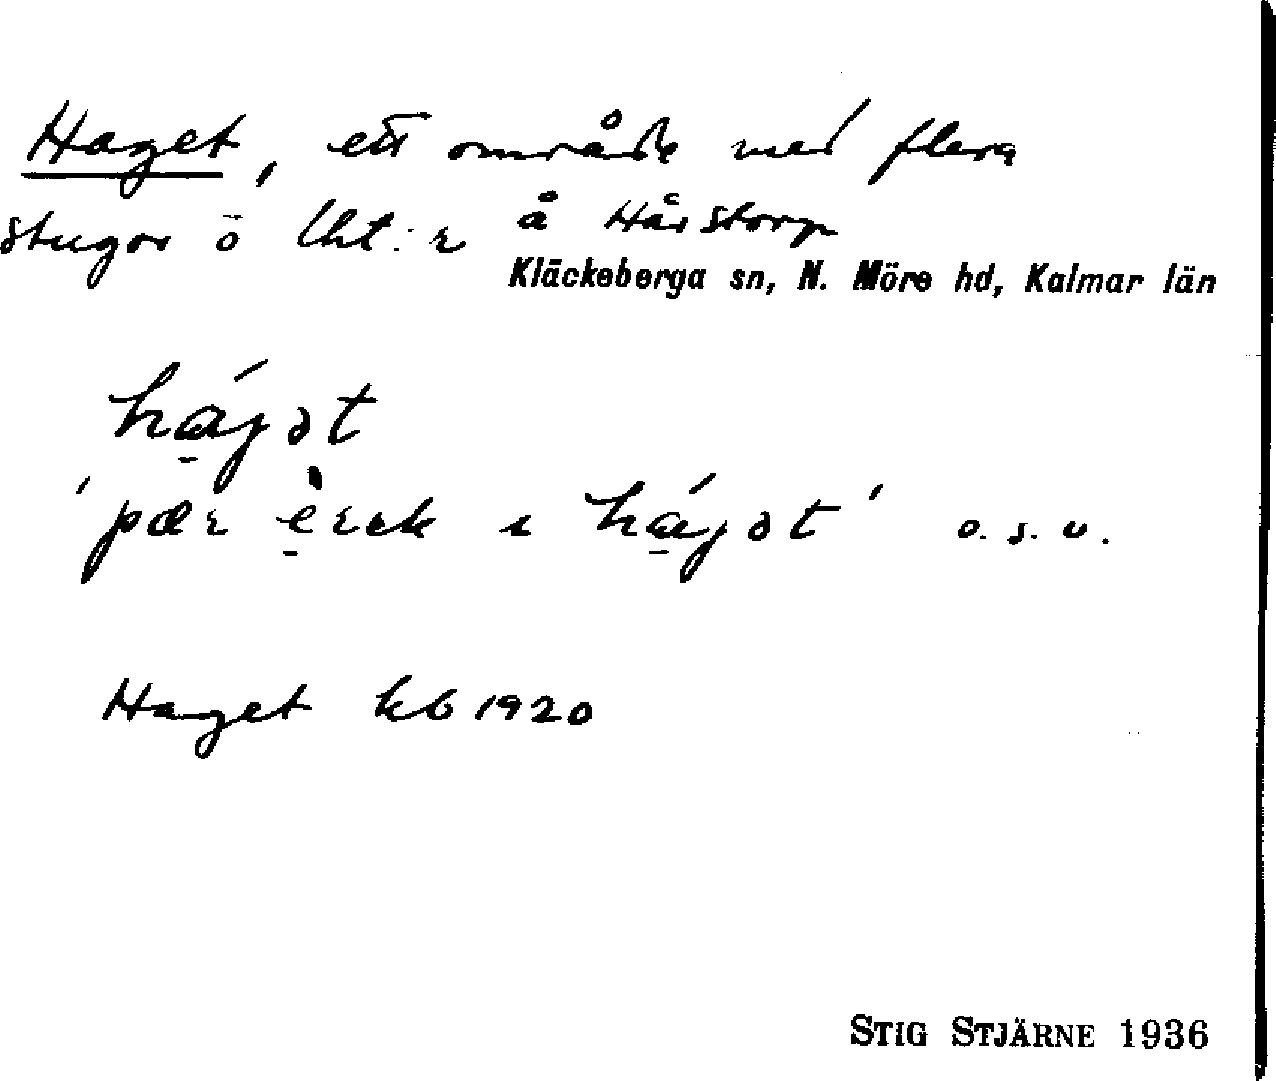 Haget, ett område med flera
stugor ö lht:r å Hårstorp
Kläckeberga sn, N. Möre hd, Kalmar län
há̱jət
'pær è̱rɪk ɪ há̱jət' o.s.v.
Haget kb 1920
STIG STJÄRNE 1936